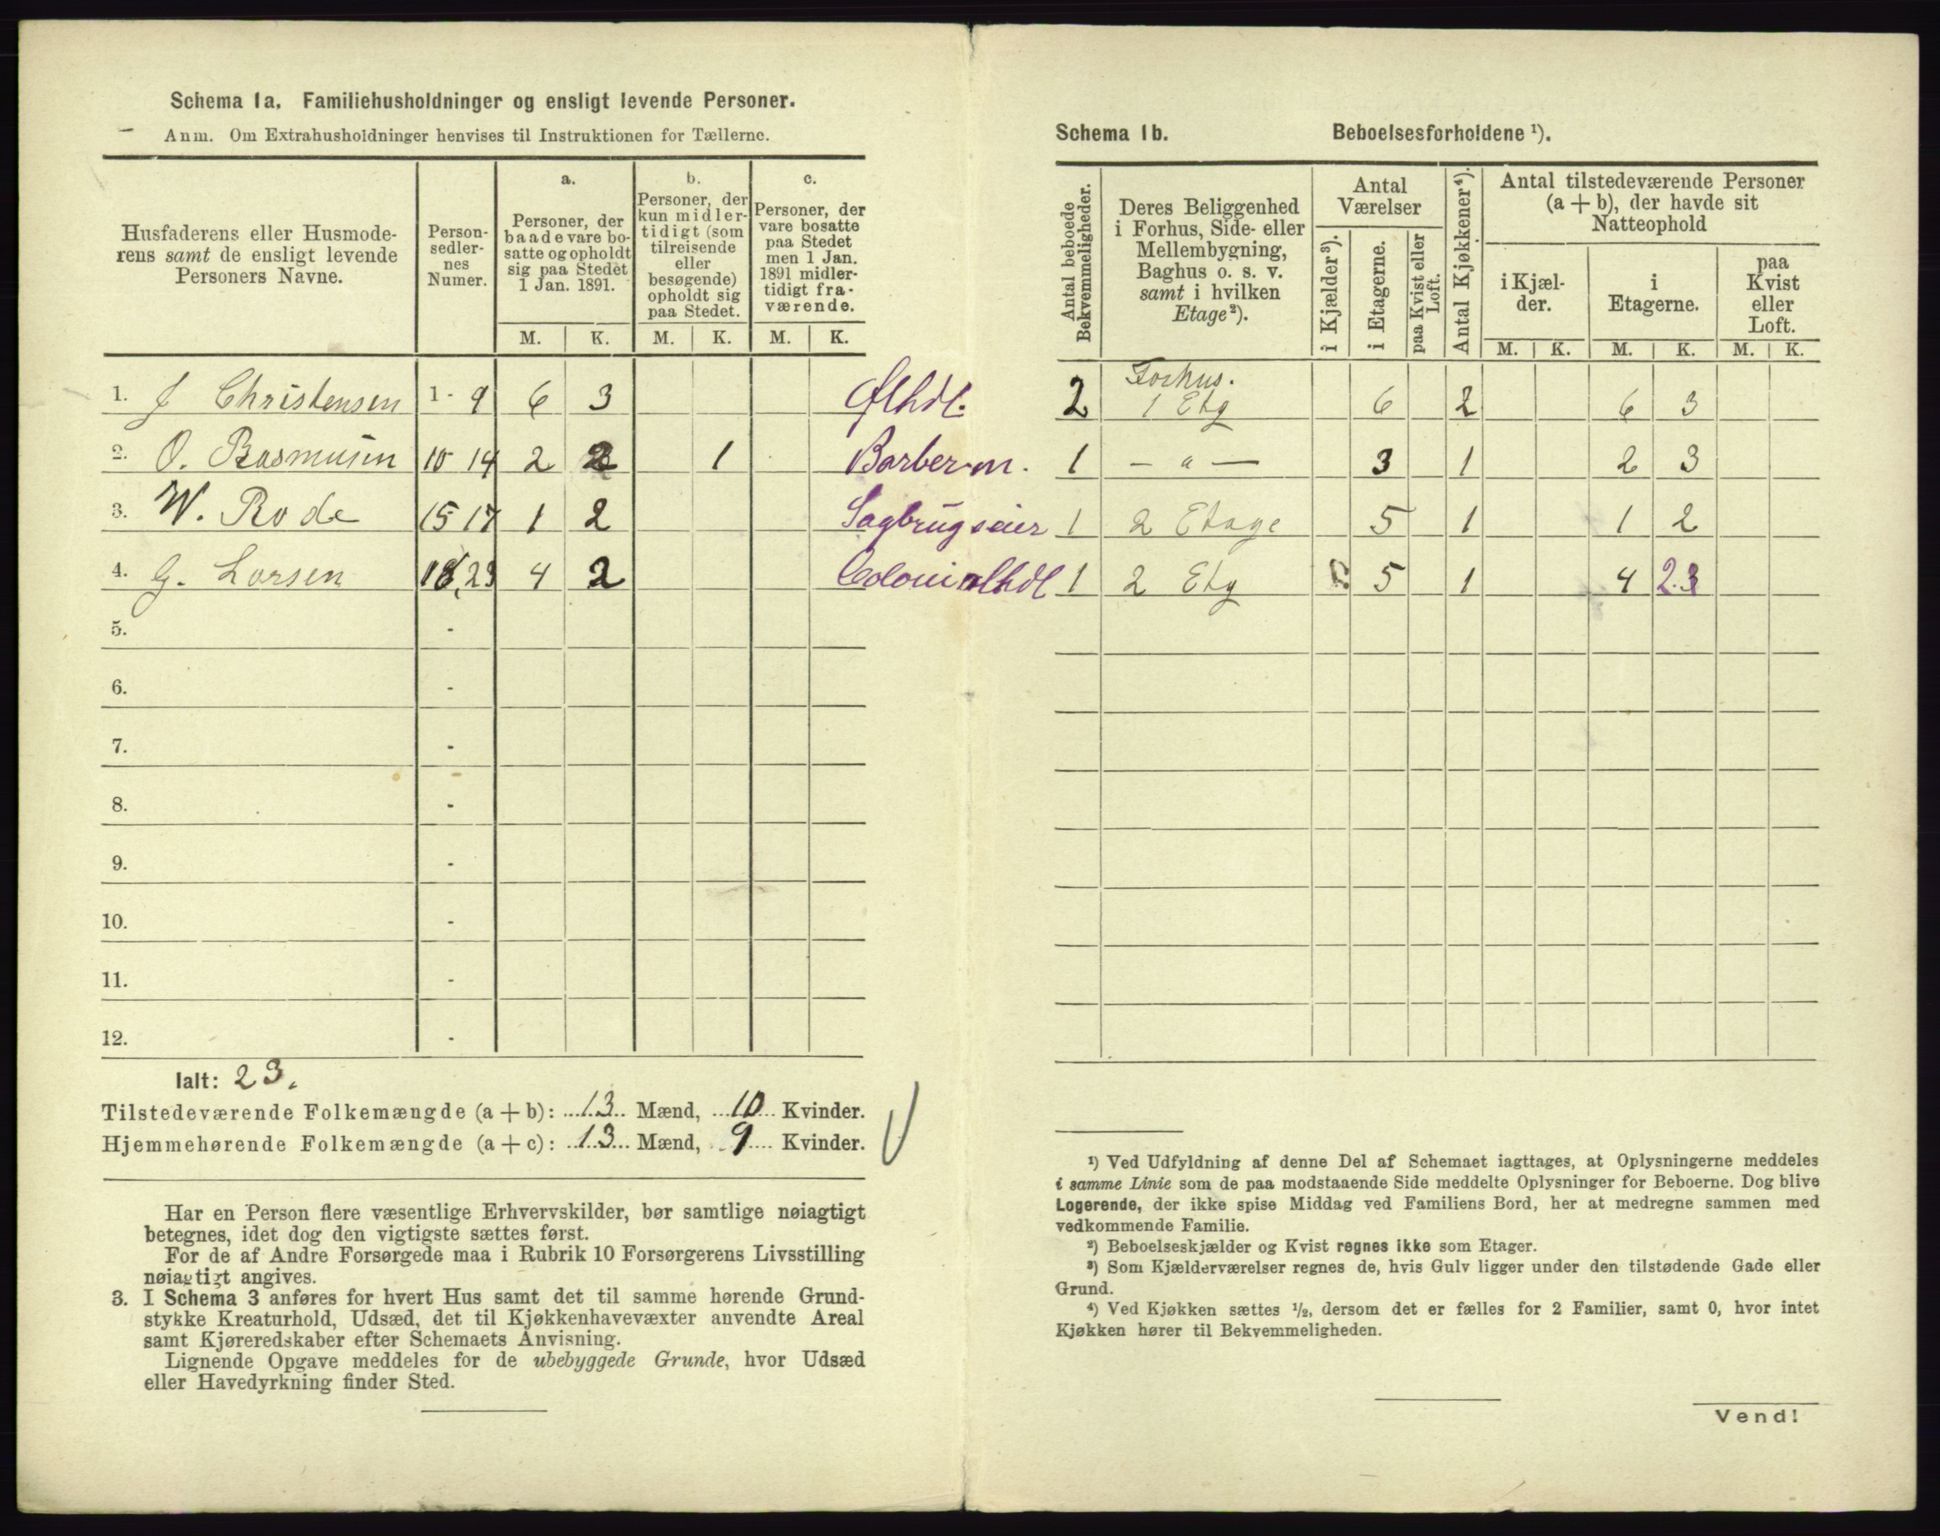 Schema 1a. Familiehusholdninger og ensligt levende Personer.
Anm. Om Extrahusholdninger henvises til Instruktionen for Tællerne.
Husfaderens eller Husmode-
rens samt de ensligt levende
Personers Navne.
Person-
sedler-
nes
Numer.
a.
Personer, der
baade vare bo-
satte og opholdt
sig paa Stedet
1 Jan. 1891.
b.
Personer, der
kun midler-
tidigt (som
tilreisende
eller
besøgende)
opholdt sig
paa Stedet.
c.
Personer, der
vare bosatte
paa Stedet
men 1 Jan.
1891 midler-
tidigt fra-
værende.
M. K. M. K. M. K.
1. J Christensen 1 - 9 6 3 Ølhdl.
2. O. Rasmusen 10 14 2 2 1 Barberm.
3. W. Rode 15 17 1 2 Sagbrugseier
4. G. Larsen 18 23 4 2 Colonialhdl
5. -
6. -
7. -
8. -
9. -
10. -
11. -
12. -
Ialt: 23.
Tilstedeværende Folkemængde (a + b): 13 Mænd, 10 Kvinder.
Hjemmehørende Folkemængde (a + c): 13 Mænd, 9 Kvinder.
Har en Person flere væsentlige Erhvervskilder, bør samtlige nøiagtigt
betegnes, idet dog den vigtigste sættes først.
For de af Andre Forsørgede maa i Rubrik 10 Forsørgerens Livsstilling
nøiagtigt angives.
3. I Schema 3 anføres for hvert Hus samt det til samme hørende Grund-
stykke Kreaturhold, Udsæd, det til Kjøkkenhavevæxter anvendte Areal
samt Kjøreredskaber efter Schemaets Anvisning.
Lignende Opgave meddeles for de ubebyggede Grunde, hvor Udsæd
eller Havedyrkning finder Sted.
Schema 1b. Beboelsesforholdene ¹).
Antal beboede
Bekvemmeligheder.
Deres Beliggenhed
i Forhus, Side- eller
Mellembygning,
Baghus o. s. v.
samt i hvilken
Etage²).
Antal
Værelser
i Kjælder³).
i Etagerne.
paa Kvist eller
Loft.
Antal Kjøkkener⁴).
Antal tilstedeværende Personer
(a + b), der havde sit
Natteophold
i Kjæl-
der.
i
Etagerne.
paa
Kvist
eller
Loft.
M. K. M. K. M. K.
Forhus.
2 1 Etg 6 2 6 3
1 — " — 3 1 2 3
1 2 Etage 5 1 1 2
1 2 Etg 5 1 4 2.3
¹) Ved Udfyldning af denne Del af Schemaet iagttages, at Oplysningerne meddeles
i samme Linie som de paa modstaaende Side meddelte Oplysninger for Beboerne. Dog blive
Logerende, der ikke spise Middag ved Familiens Bord, her at medregne sammen med
vedkommende Familie.
²) Beboelseskjælder og Kvist regnes ikke som Etager.
³) Som Kjælderværelser regnes de, hvis Gulv ligger under den tilstødende Gade eller
Grund.
⁴) Ved Kjøkken sættes ¹/₂, dersom det er fælles for 2 Familier, samt 0, hvor intet
Kjøkken hører til Bekvemmeligheden.
Vend!